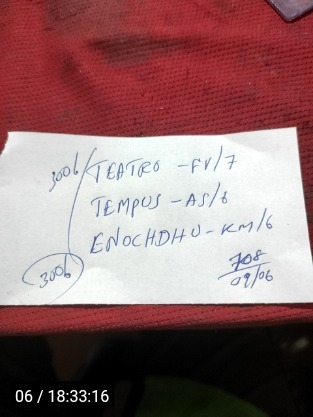 300b/TEATRO - FV/7
TEMPUS - AS/8
ENOCHDHU - KM/6
300b
708
09/06
06 / 18:33:16